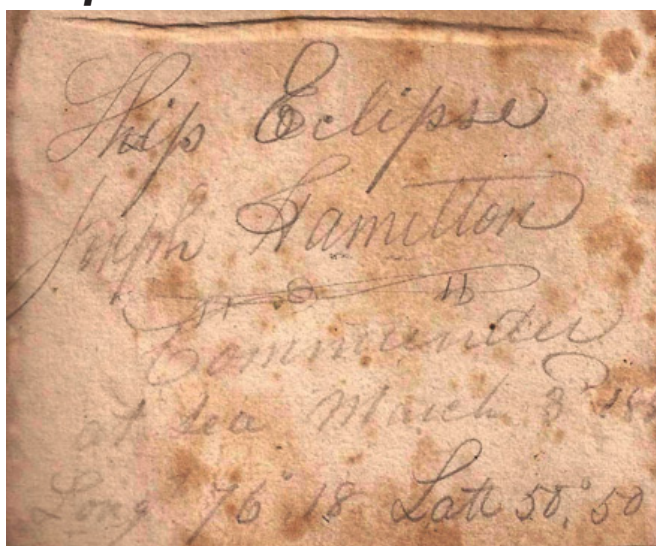 Ship Eclipse
Joseph Hamilton
Commander
at sea March 3
Long 76° 18 Latt 50° 50